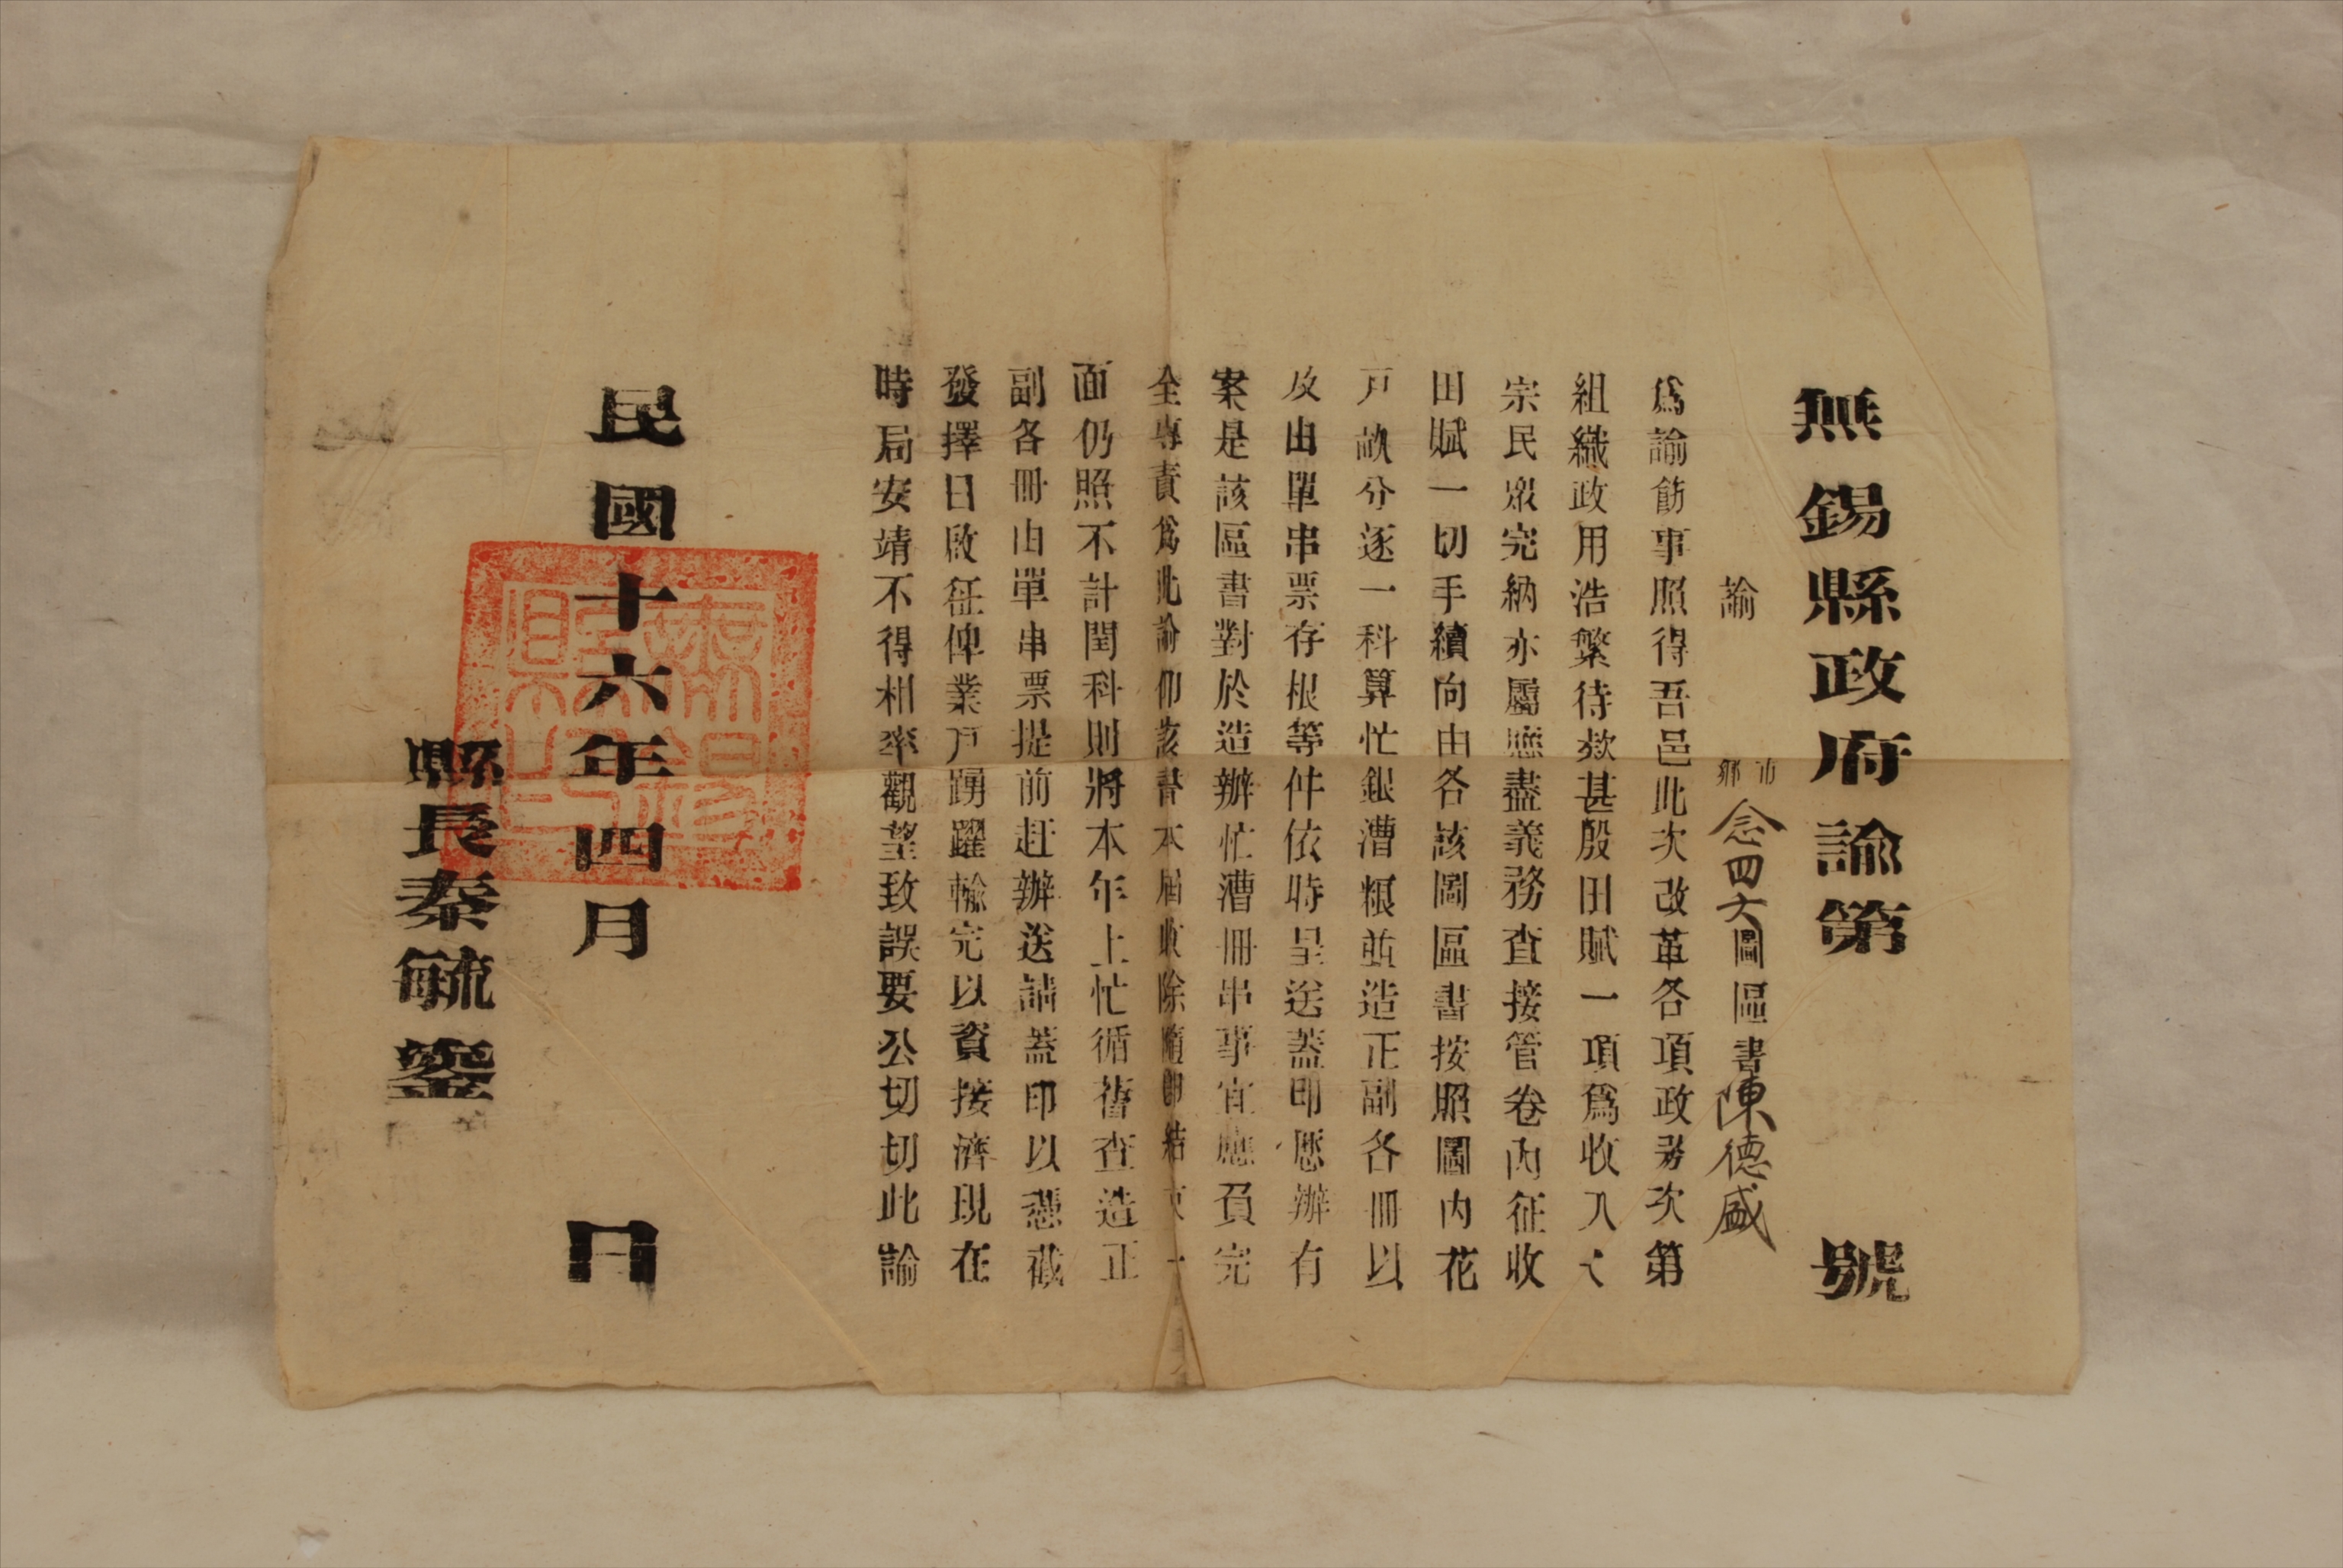 無錫縣政府諭第 號
諭 市鄉念四大圖區書陳德盛
爲諭飭事照得吾邑此次改革各項政务次第
組織政用浩繁待欵甚殷田賦一項爲收入大
宗民衆完納亦屬應盡義務查接管卷內征收
田賦一切手續向由各該圖區書按照圖内花
戸畝分逐一科算忙銀漕糧並造正副各冊以
及由單串票存根等件依時呈送蓋印歷辦有
案是該區書對於造辦忙漕冊串事宜應負完
全專責爲此諭仰該書本屆收除隨卽結束一
面仍照不計閏科則將本年上忙循舊查造正
副各冊由單串票提前赶辦送請蓋印以憑截
發擇日啟征俾業戸踴躍輸完以資接濟現在
時局安靖不得相率觀望致誤要公切切此諭
民國十六年四月 日
縣長秦毓鎏
無錫縣印